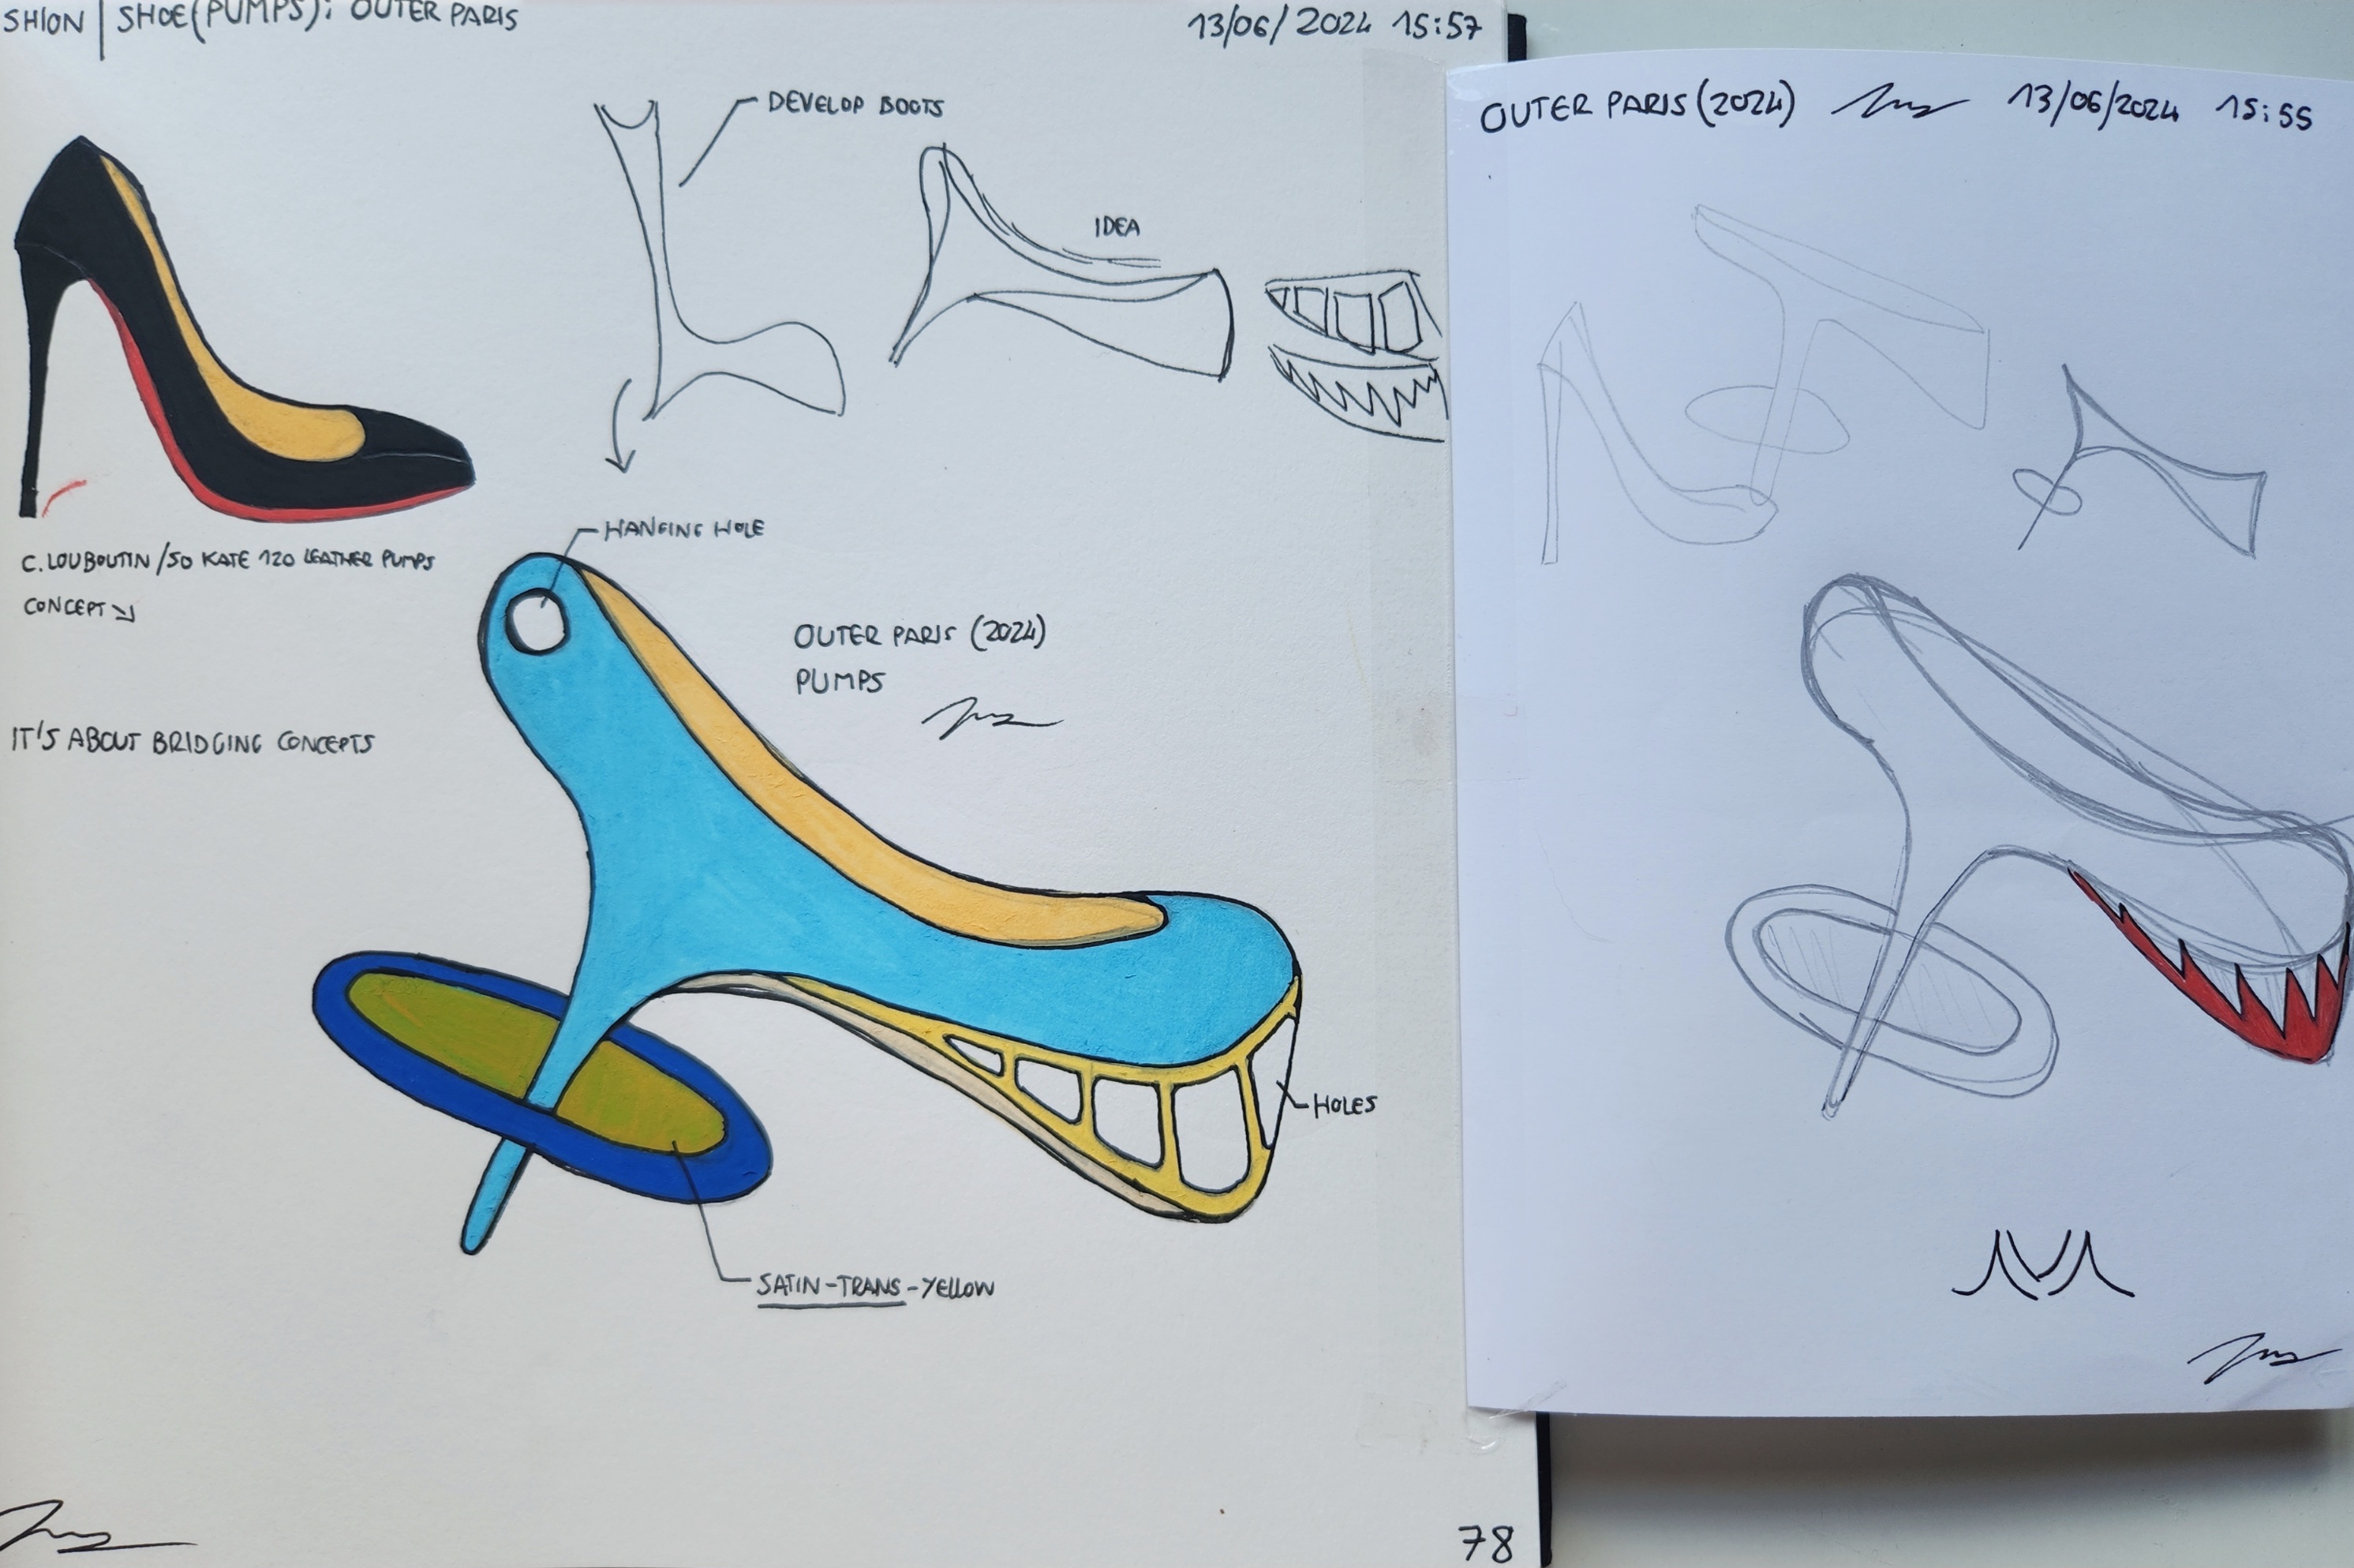 SHION | SHOE(PUMPS): OUTER PARIS
13/06/2024 15:57
DEVELOP BOOTS
IDEA
C. LOUBOUTIN/SO KATE 120 LEATHER PUMPS
CONCEPT
HANGING HOLE
OUTER PARIS (2024)
PUMPS
IT'S ABOUT BRIDGING CONCEPTS
HOLES
SATIN-TRANS-YELLOW
78
OUTER PARIS (2024) 13/06/2024 15:55